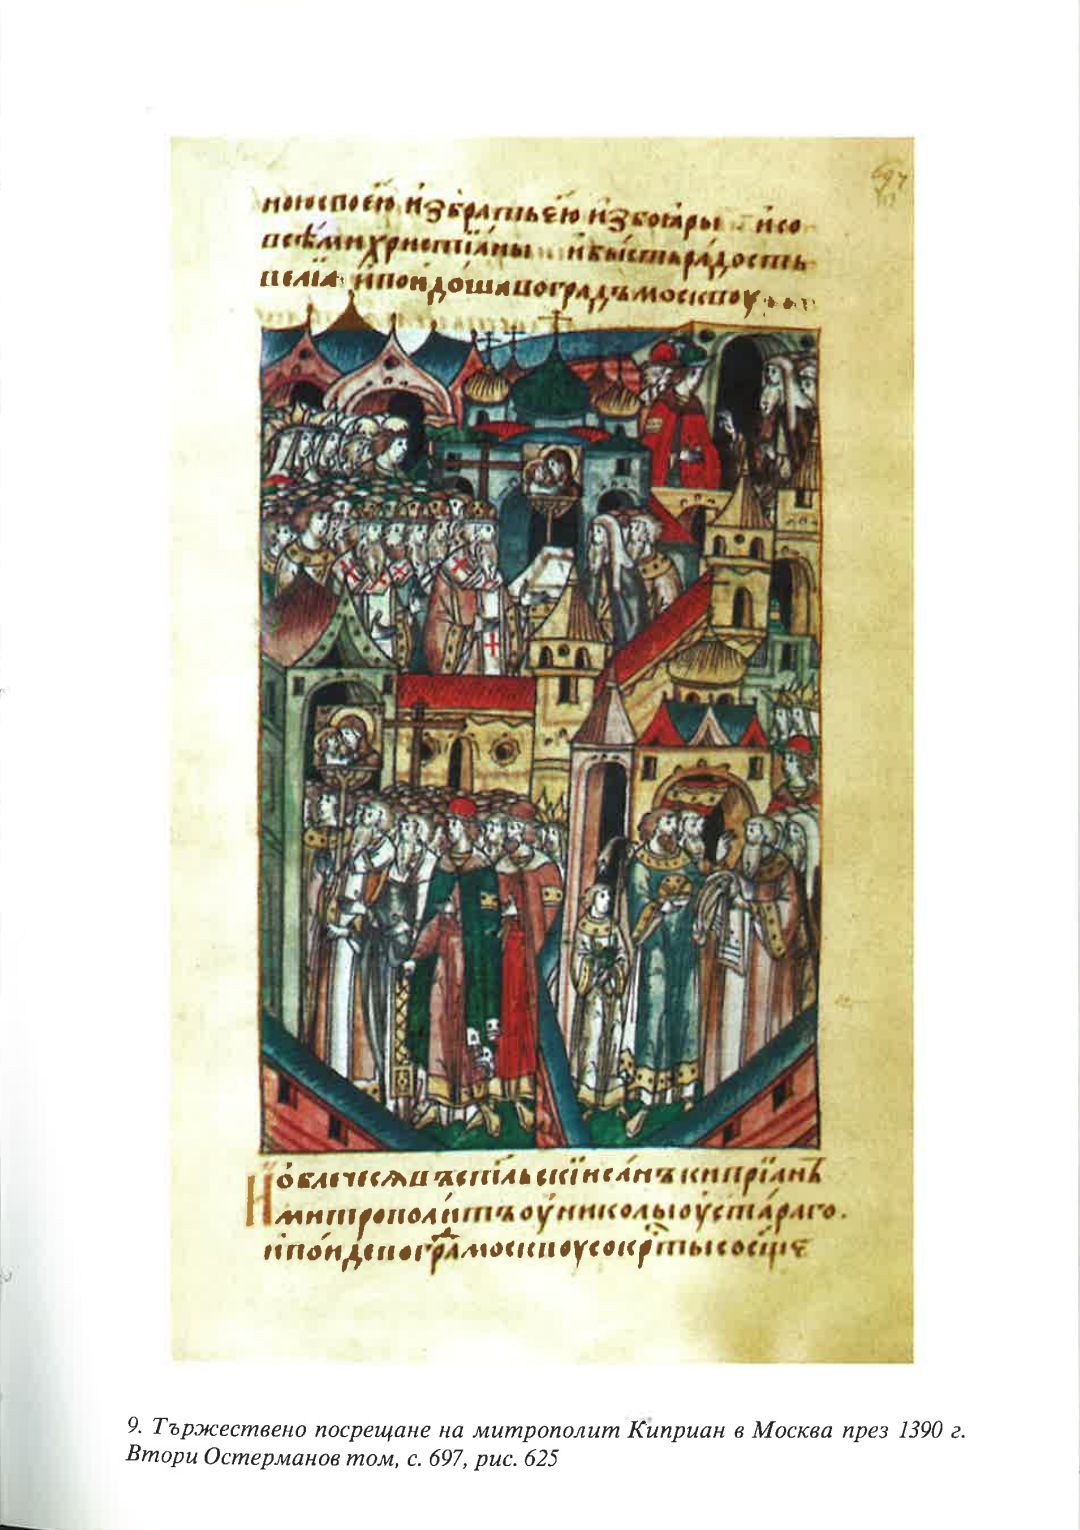 697
ною своею и з братьею и з бояры и со
всѣми христианы и бысть радость
велїа и поидоша во градъ москву
И облечеся въ святительскїи санъ кипрїанъ
митрополитъ у николы у стараго.
и поиде во град москву со кресты со сщ҃е
9. Тържествено посрещане на митрополит Киприан в Москва през 1390 г.
Втори Остерманов том, с. 697, рис. 625